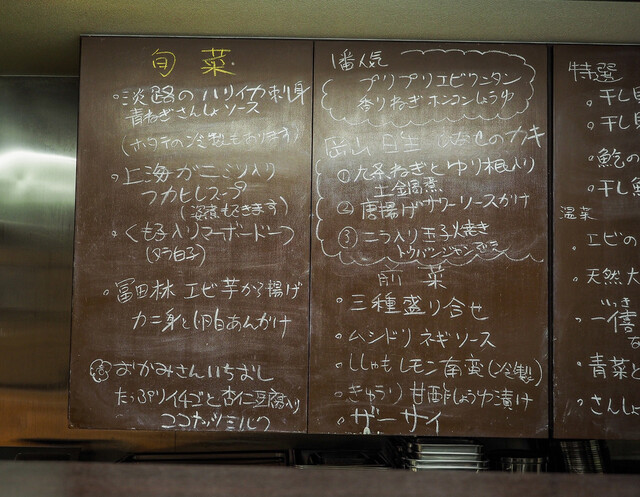 旬菜
○淡路のハリイカ刺身
青ねぎさんしょソース
(ホタテの冷製もあります)
○上海がニミソ入り
フカヒレスープ
(姿煮もできます)
○くも子入りマーボードーフ
(タラ白子)
○冨田林 エビ芋から揚げ
カニ身と卵白あんかけ
おかみさんいちおし
たっぷりイチゴと杏仁豆腐入り
ココナッツミルク
1番人気
プリプリエビワンタン
香りねぎホンコンしょうゆ
岡山 日生 しあわせのカキ
①九条ねぎとゆり根入り
土鍋煮
②唐揚げサワーソースがけ
③ニラ入り玉子焼き
トウバンジャン
前菜
○三種盛り合せ
○ムシドリ ネギソース
○ししゃもレモン南蛮(冷製)
○きゅうり甘酢しょうゆ漬け
○ザーサイ
特選
○干し
○干し
○鮑の
○干し
温菜
○エビの
○天然
○一
○青菜と
○さんしょ